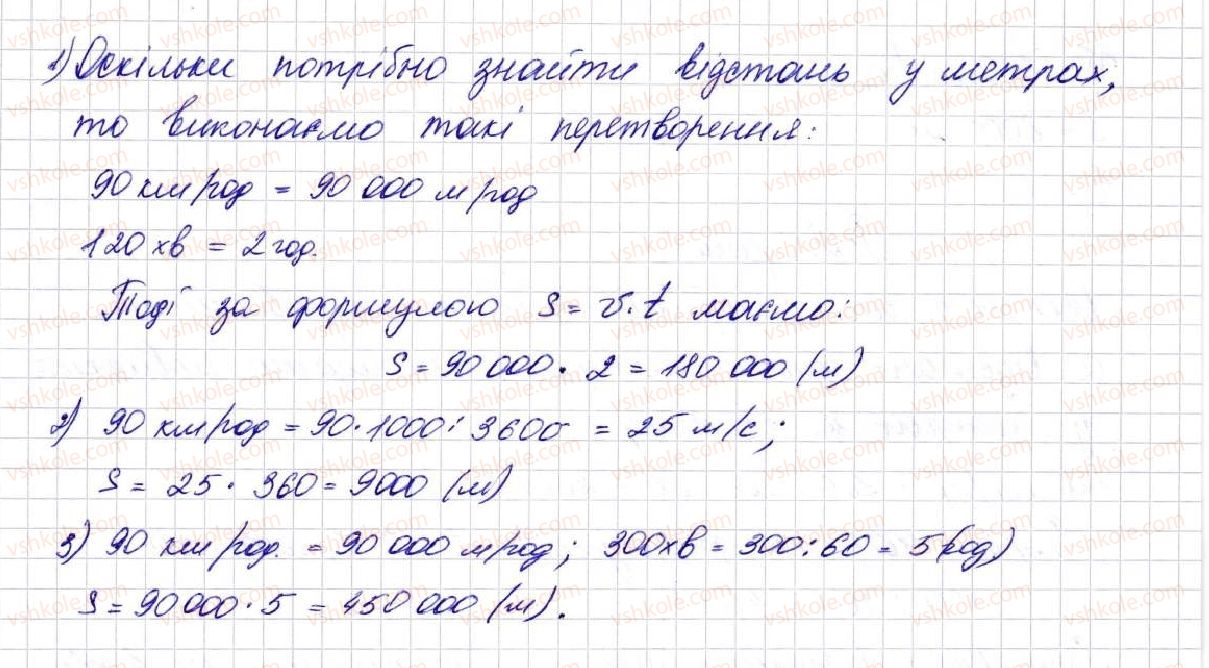 1) Оскільки потрібно знайти відстань у метрах,
то виконаємо такі перетворення:
90 км/год = 90 000 м/год
120 хв = 2 год.
Тоді за формулою s = v · t маємо:
s = 90 000 · 2 = 180 000 (м)
2) 90 км/год = 90 · 1000 : 3600 = 25 м/с;
s = 25 · 360 = 9000 (м)
3) 90 км/год. = 90 000 м/год; 300 хв = 300 : 60 = 5 (год)
s = 90 000 · 5 = 450 000 (м).
vshkole.com